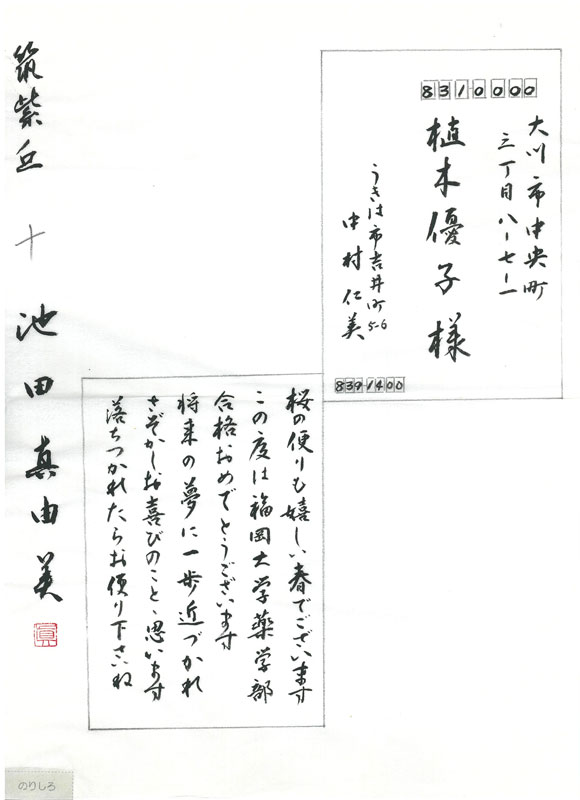 8310000
大川市中央町
三丁目八ー七ー一
植木優子様
うきは市吉井町5-6
中村仁美
8391400
桜の便りも嬉しい春でございます
この度は福岡大学薬学部
合格おめでとうございます
将来の夢に一歩近づかれ
さぞかしお喜びのことゝ思います
落ちつかれたらお便り下さいね
筑紫丘 十 池田真由美
真
のりしろ